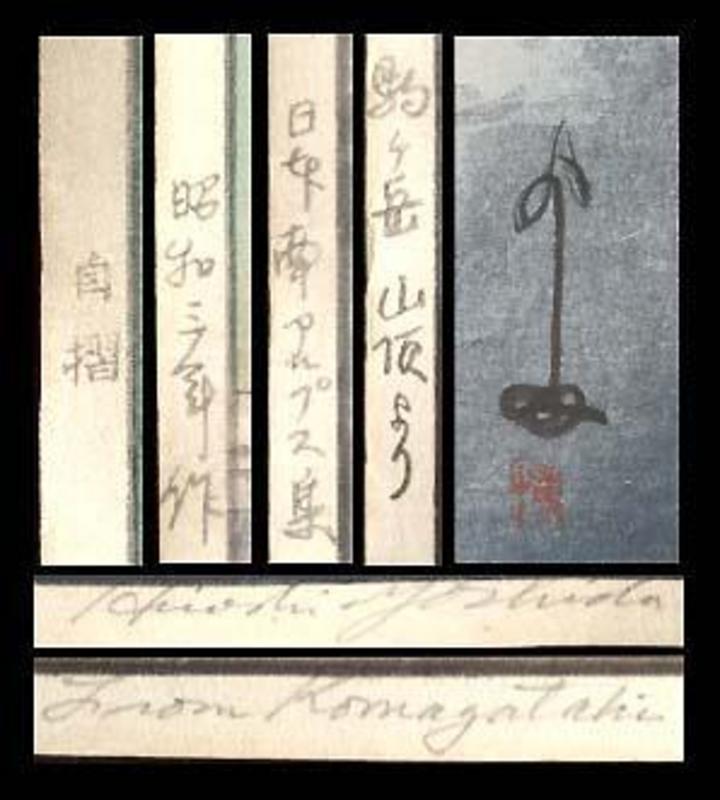 駒ヶ岳山頂より
日本南アルプス集
昭和三年作
自摺
Hiroshi Yoshida
From Komagatake